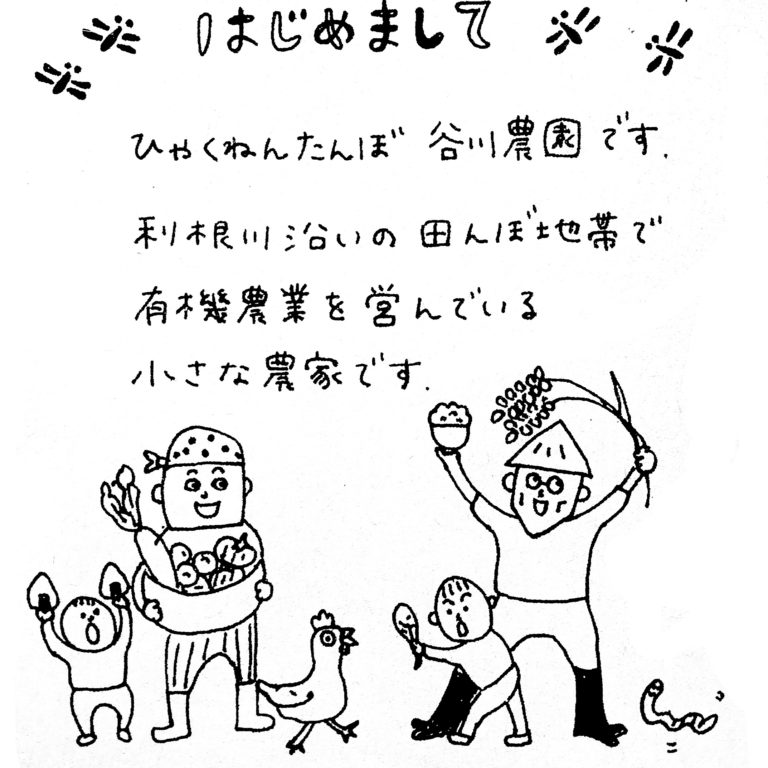 はじめまして
ひゃくねんたんぼ 谷川農園です.
利根川沿いの 田んぼ地帯で
有機農業を営んでいる
小さな農家です.